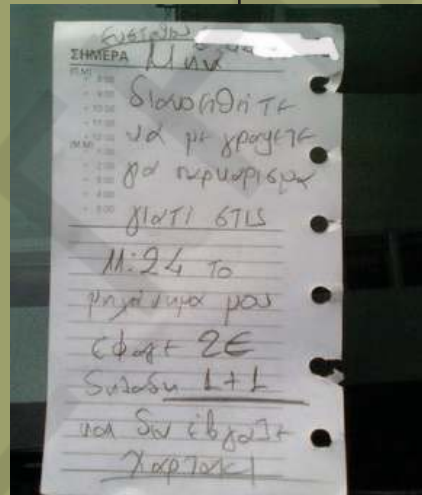 ΣΗΜΕΡΑ Μην
(Π.Μ)
διανοηθητε
(Μ.Μ) να με γραψετε
για παρκαρισμα
γιατί στις
11:24 το
μηχάνημα μου
εφαγε 2€
δηλαδη 1+1
και δεν έβγαλε
χαρτακι